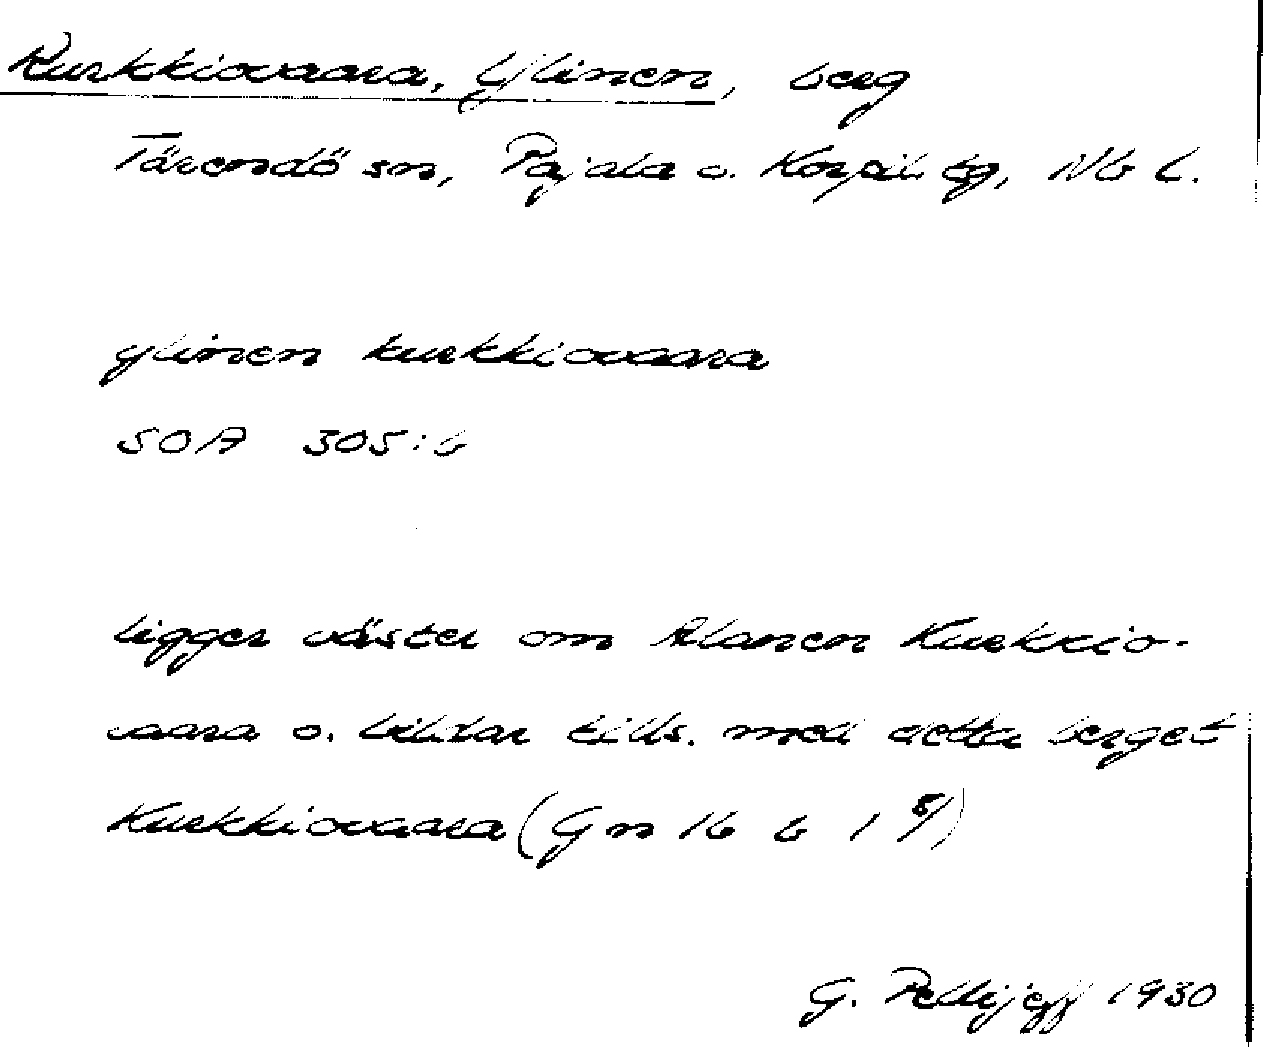 Kurkkiovaara, Ylinen, berg
Tärendö sn, Pajala o. Korpil. tg, Nb L.
ylinen kurkkiovaara
SOA 305:6
ligger väster om Alanen Kurkkio-
vaara o. bildar tills. med detta berget
Kurkkiovaara (Gn 16 b 1
G. Pellijeff 1930